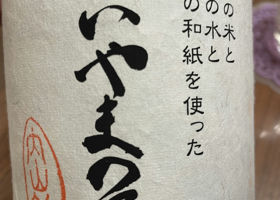 の米と
の水と
の和紙を使った
いやまの
内山